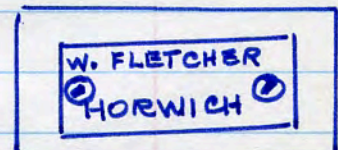 W. FLETCHER
HORWICH